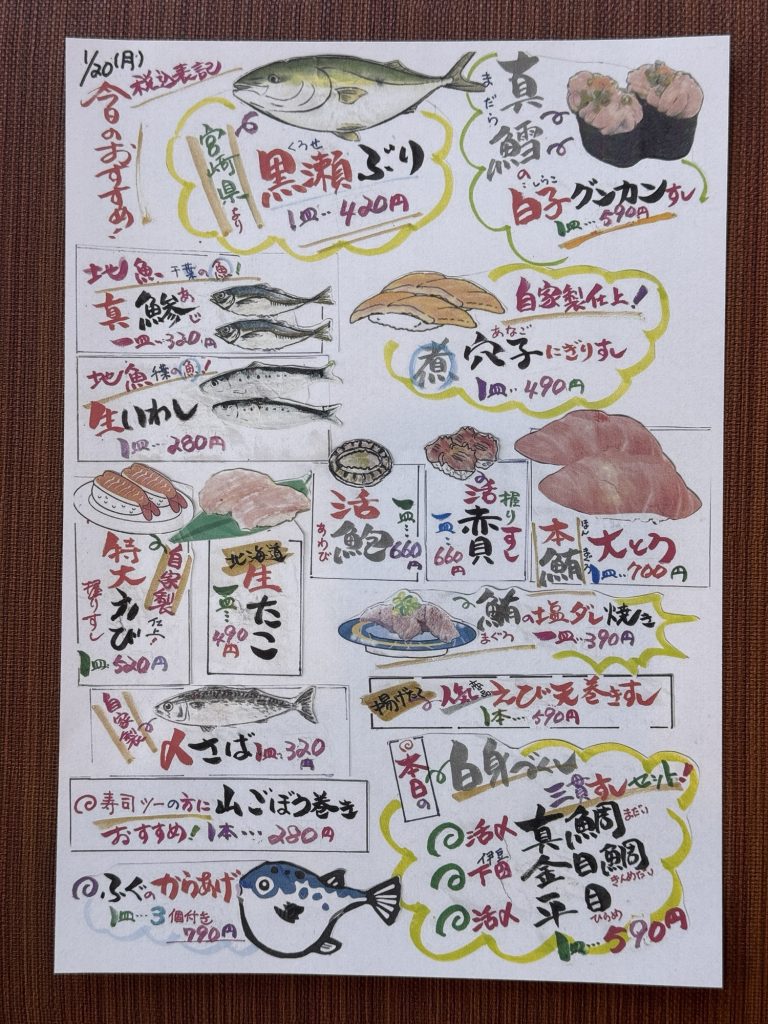 1/20(月)
税込表記
今日のおすすめ!
宮崎県より
くろせ
黒瀬ぶり
1皿…420円
まだら
真鱈の
しらこ
白子グンカンすし
1皿…590円
地魚千葉の魚!
あじ
真鯵
一皿…320円
地魚千葉の魚!
生いわし
1皿…280円
自家製仕上!
あなご
煮穴子にぎりすし
1皿…490円
特大えび
握りすし
自家製仕上
1皿…520円
北海道
生たこ
一皿…490円
活鮑
あわび
一皿…660円
握りすし
活赤貝
一皿…660円
ほんまぐろ
本鮪大とろ
1皿…700円
鮪の塩ダレ焼き
まぐろ
一皿…390円
自家製
〆さば1皿…320円
揚げたて
人気商品えび天巻きすし
1本…590円
寿司ツーの方に山ごぼう巻き
おすすめ!1本…280円
ふぐのからあげ
1皿…3個付き
790円
本日の
白身づくし
三貫すしセット!
活〆真鯛まだい
伊豆
下田金目鯛きんめだい
活〆平目ひらめ
1皿…590円